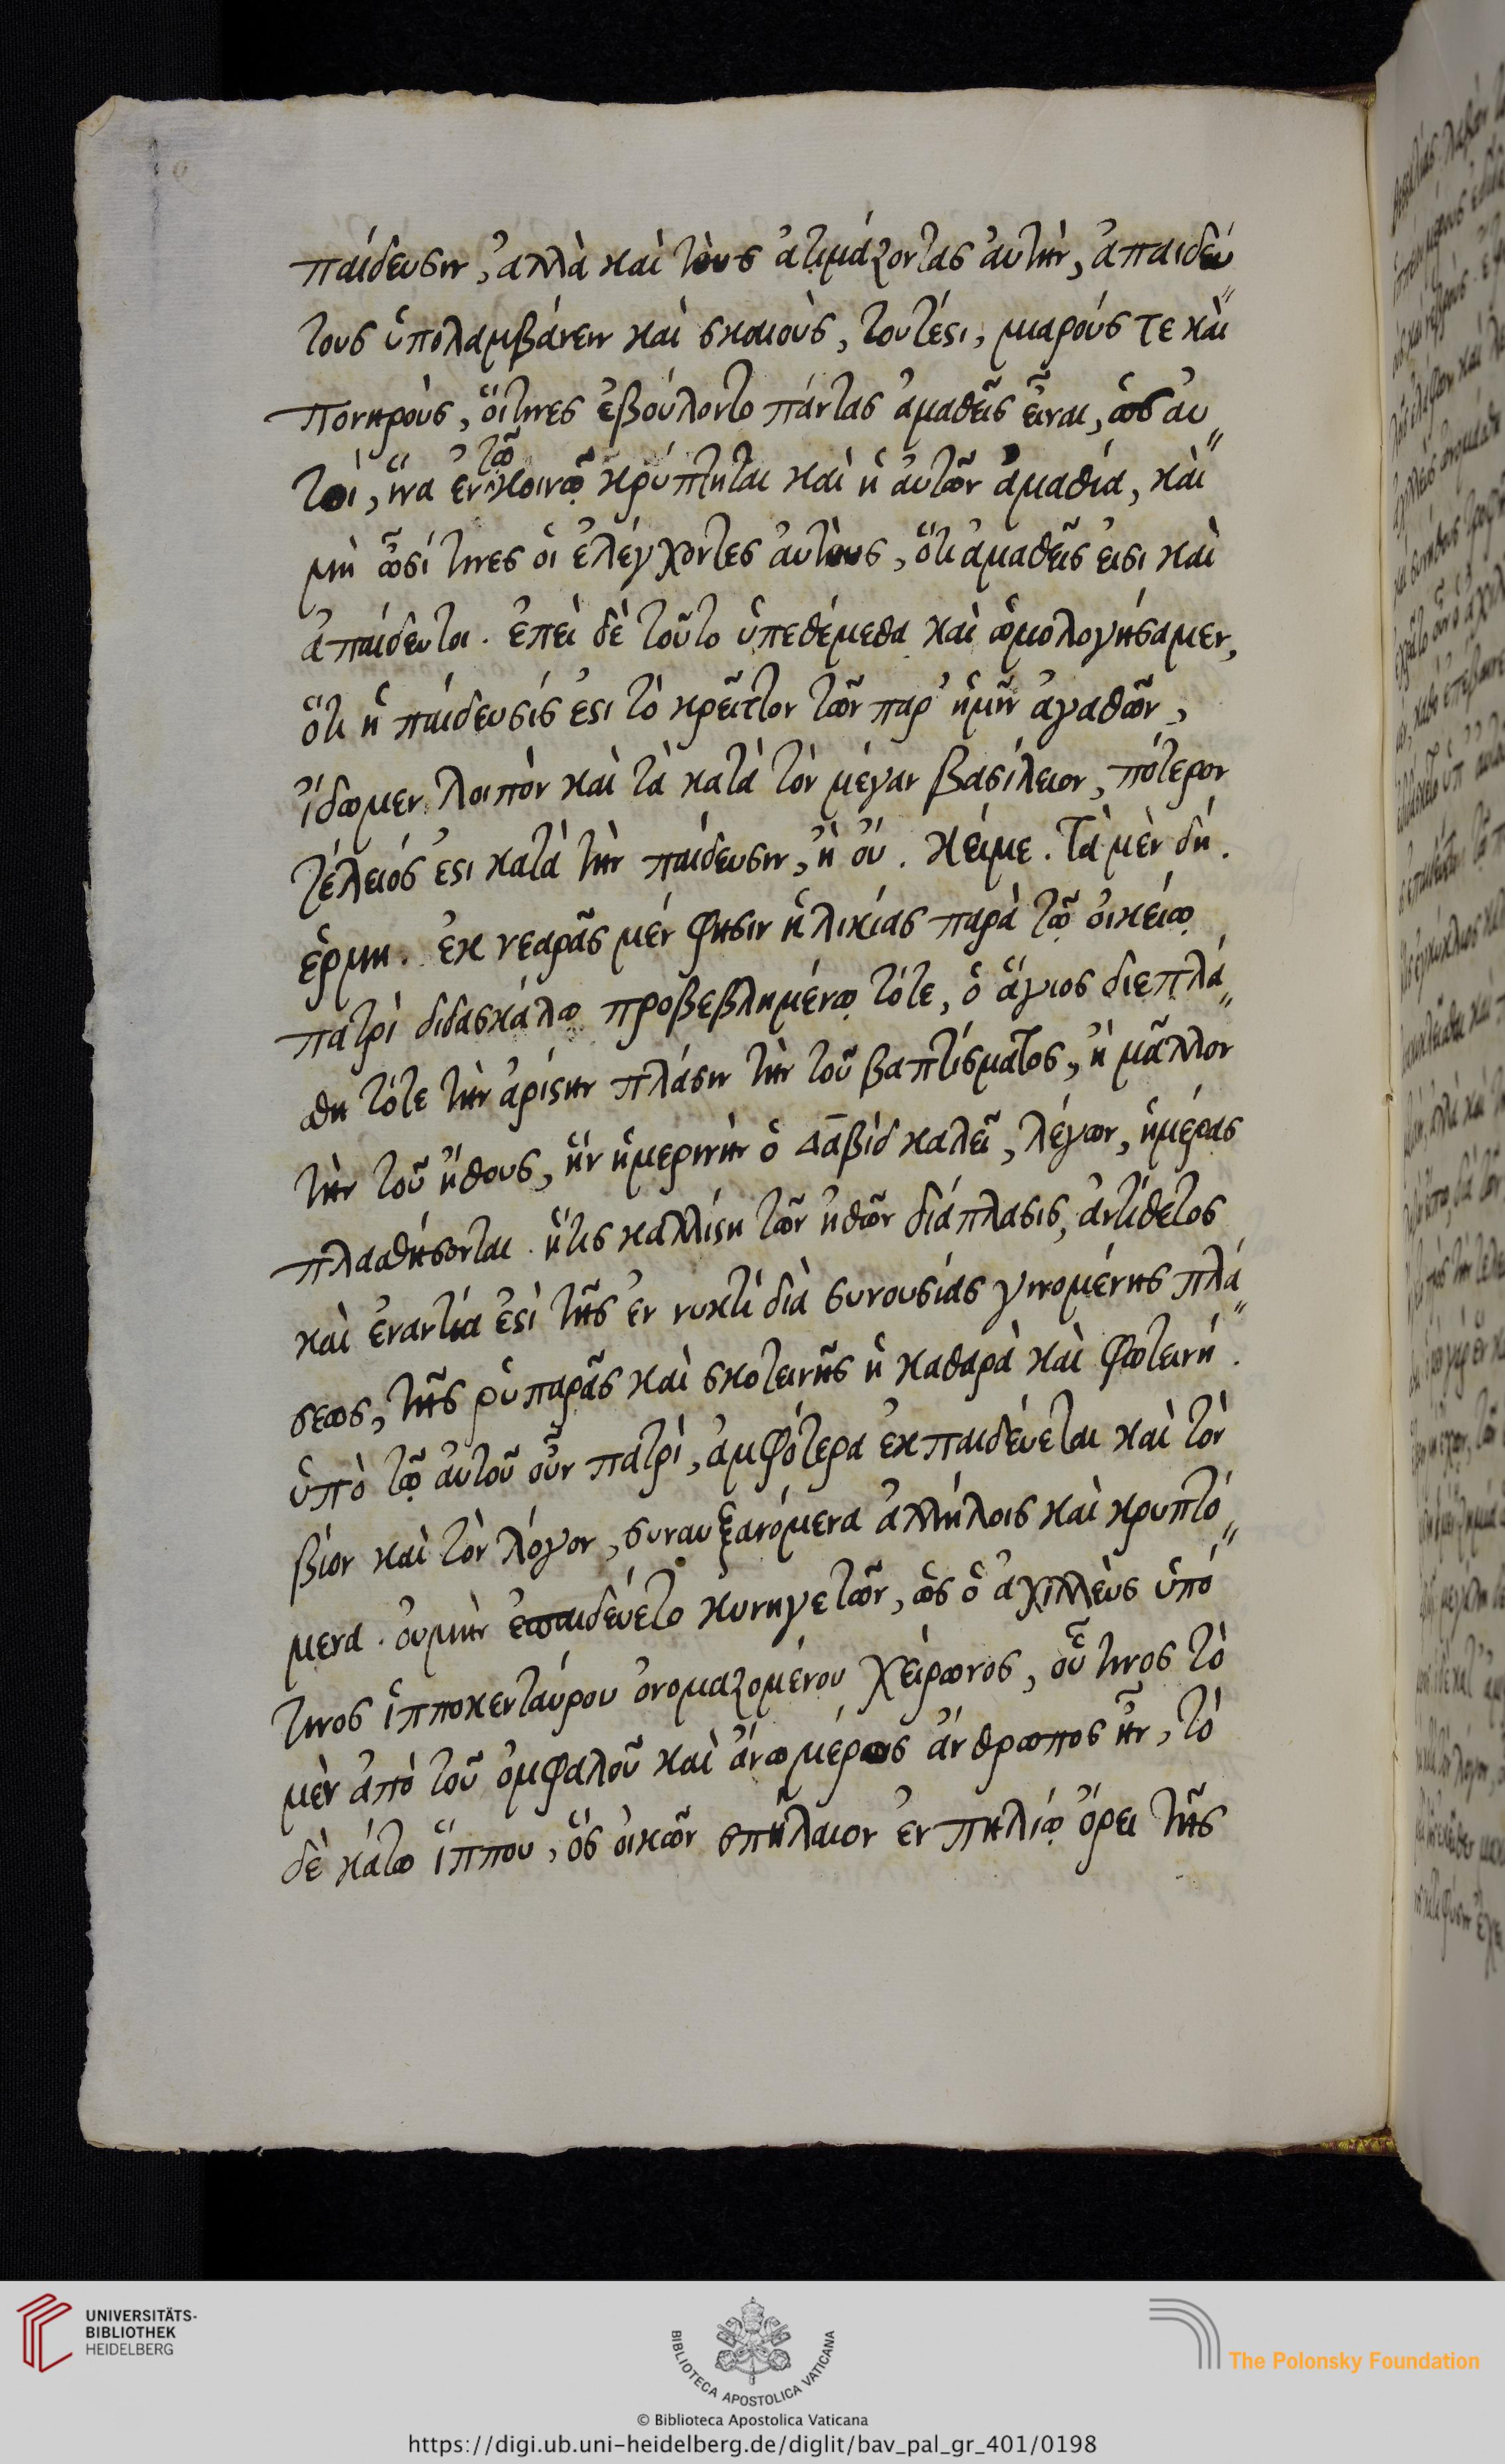 παίδευσιν, ἀλλὰ καὶ τοὺς ἀτιμάζοντας ἀυτὴν, ἀπαιδεύ
τους ὑπολαμβάνειν καὶ σκαιοὺς, τουτέστι, μιαρούς τε καὶ
πονηροὺς, ὅιτινες ἐβούλοντο πάντας ἀμαθεῖς εἶναι, ὡς ἀυ
τοὶ, ἵνα ἐν τῶ κοινῷ κρύπτηται καὶ ἡ ἀυτῶν ἀμαθία, καὶ
μὴ ὦσί τινες ὁι ἐλέγχοντες ἀυτοὺς, ὅτι ἀμαθεῖς εἰσι καὶ
ἀπαίδευτοι. ἐπεὶ δὲ τοῦτο ὑπεθέμεθα καὶ ὡμολογήσαμεν,
ὅτι ἡ παίδευσίς ἐστι τὸ κρεῖττον τῶν παρ' ἡμῖν ἀγαθῶν,
ἴδωμεν λοιπὸν καὶ τὰ κατὰ τὸν μέγαν βασίλειον, πότερον
τέλειός ἐστι κατὰ τὴν παίδευσιν, ἢ ὄυ. κείμε. Τὰ μὲν δή.
ἑρμη. ἐκ νεαρᾶς μέν φησιν ἡλικίας παρὰ τῷ ὀικείῳ
πατρὶ διδασκάλῳ προβεβλημένῳ τότε, ὁ ἅγιος διεπλά
σθη τότε τὴν ἀρίστην πλάσιν τὴν τοῦ βαπτίσματος, ἢ μᾶλλον
τὴν τοῦ ἤθους, ἣν ἡμερινὴν ὁ Δαβὶδ καλεῖ, λέγων, ἡμέρας
πλασθήσονται. ἥτις καλλίστη τῶν ἠθῶν διάπλασις, ἀντίθετος
καὶ ἐναντία ἐστὶ τῆς ἐν νυκτὶ διὰ συνουσίας γινομένης πλά
σεως, τῆς ῥυπαρᾶς καὶ σκοτεινῆς ἡ καθαρὰ καὶ φωτεινή.
ὑπὸ τῷ ἀυτοῦ οὖν πατρὶ, ἀμφότερα ἐκπαιδεύεται καὶ τὸν
βίον καὶ τὸν λόγον, συναυξανόμενα ἀλλήλοις καὶ κρυπτό
μενα. ὀυμὴν ἐπαιδεύετο κυνηγετῶν, ὡς ὁ ἀχιλλεὺς ὑπό
τινος ἱπποκενταύρου ὀνομαζομένου χείρωνος, οὗ τινος τὸ
μὲν ἀπὸ τοῦ ὀμφαλοῦ καὶ ἄνω μέρος ἄνθρωπος ἦν, τὸ
δὲ κάτω ἵππου, ὃς ὀικῶν σπήλαιον ἐν πηλίῳ ὄρει τῆς
UNIVERSITÄTS-
BIBLIOTHEK
HEIDELBERG
BIBLIOTECA APOSTOLICA VATICANA
The Polonsky Foundation
© Biblioteca Apostolica Vaticana
https://digi.ub.uni-heidelberg.de/diglit/bav_pal_gr_401/0198